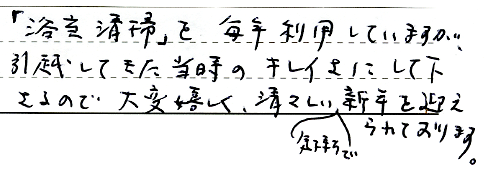 「浴室清掃」を毎年利用していますが、
引越してきた当時のキレイさにして下
さるので大変嬉しく、清々しい新年を迎え
られております。
気持ちで